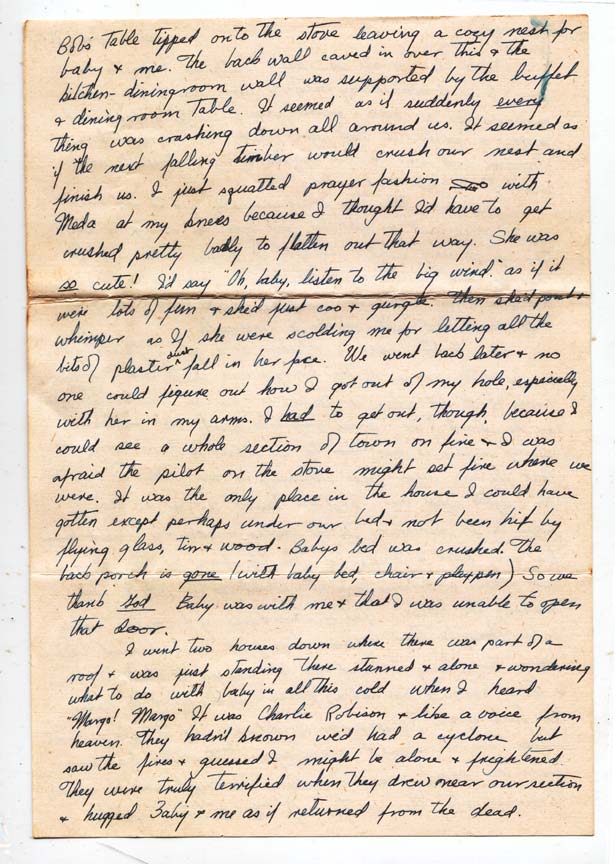 Bob's Table tipped onto the stove leaving a cozy nest for
baby & me. The back wall caved in over this & the
kitchen-diningroom wall was supported by the buffet
& diningroom Table. It seemed as if suddenly every
thing was crashing down all around us. It seemed as
if the next falling timber would crush our nest and
finish us. I just squatted prayer fashion with
Meda at my knees because I thought I'd have to get
crushed pretty badly to flatten out that way. She was
so cute! I'd say "Oh, baby, listen to the big wind." as if it
were lots of fun & she'd just coo & gurgle. Then she'd pout &
whimper as If she were scolding me for letting all the
bits of plaster dust fall in her face. We went back later & no
one could figure out how I got out of my hole, especially
with her in my arms. I had to get out, though, because I
could see a whole section of town on fire & I was
afraid the pilot on the stove might set fire where we
were. It was the only place in the house I could have
gotten except perhaps under our bed & not been hit by
flying glass, tin & wood. Babys bed was crushed. The
back porch is gone (with baby bed, chair & playpen) So we
thank God Baby was with me & that I was unable to open
that door.
I went two houses down where there was part of a
roof & was just standing there stunned & alone & wondering
what to do with baby in all this cold when I heard
"Margo! Margo" It was Charlie Robison & like a voice from
heaven. They hadn't known we'd had a cyclone but
saw the fires & guessed I might be alone & frightened.
They were truly terrified when they drew near our section
& hugged Baby & me as if returned from the dead.